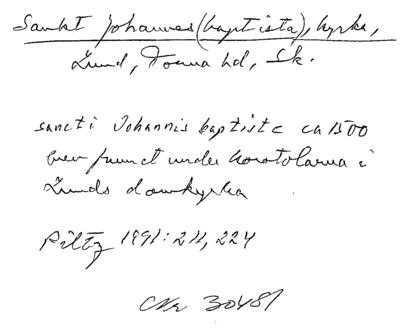 Sankt Johannes (baptista), kyrka,
Lund, Torna hd, Sk.
sancti Johannis baptiste ca 1500
brev funnet under korstolarna i
Lunds domkyrka
Piltz 1991: 211, 224
CNr 30481